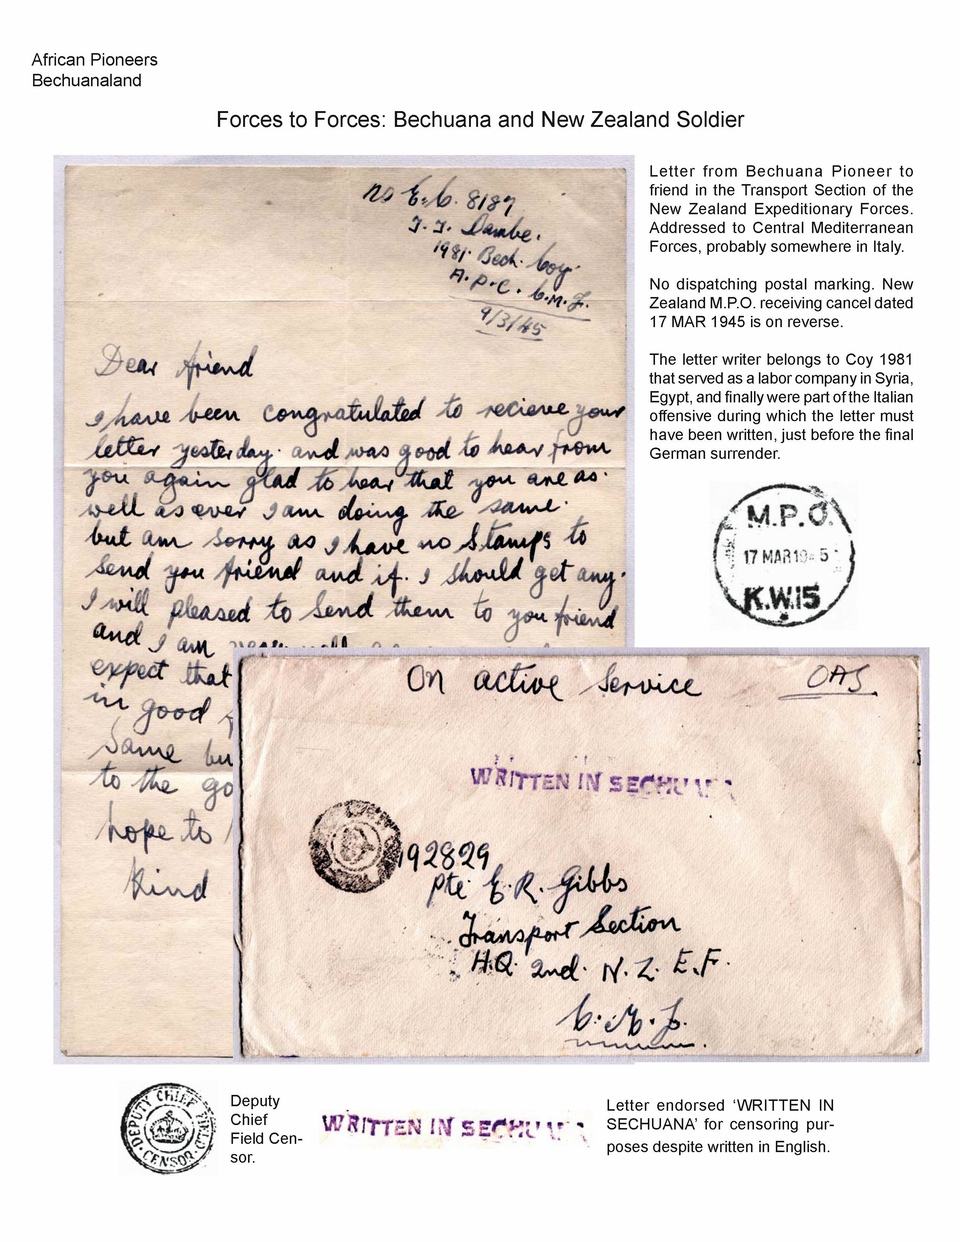 African Pioneers
Bechuanaland
Forces to Forces: Bechuana and New Zealand Soldier
no E.C. 8187
1981. Bech. Coy.
A.P.C. C.M.F.
9/3/45
Dear friend
I have been congratulated to recieve your
letter yesterday. and was good to hear from
you again glad to hear that you are as.
well as ever I am doing the same.
but am sorry as I have no Stamps to
Send you friend and if. I should get any.
I will pleased to Send them to you friend
and I am
expect that
in good
Same bu
to the go
hope to
Kind
Letter from Bechuana Pioneer to
friend in the Transport Section of the
New Zealand Expeditionary Forces.
Addressed to Central Mediterranean
Forces, probably somewhere in Italy.
No dispatching postal marking. New
Zealand M.P.O. receiving cancel dated
17 MAR 1945 is on reverse.
The letter writer belongs to Coy 1981
that served as a labor company in Syria,
Egypt, and finally were part of the Italian
offensive during which the letter must
have been written, just before the final
German surrender.
M.P.O.
17 MAR 1945
K.W.15
On active Service
OAS.
WRITTEN IN SECHUANA
192829
Pte E.R. Gibbs
Transport Section
H.Q. 2nd. N.Z.E.F.
C.M.F.
DEPUTY CHIEF FIELD
CENSOR
Deputy
Chief
Field Cen-
sor.
WRITTEN IN SECHUANA
Letter endorsed ‘WRITTEN IN
SECHUANA’ for censoring pur-
poses despite written in English.